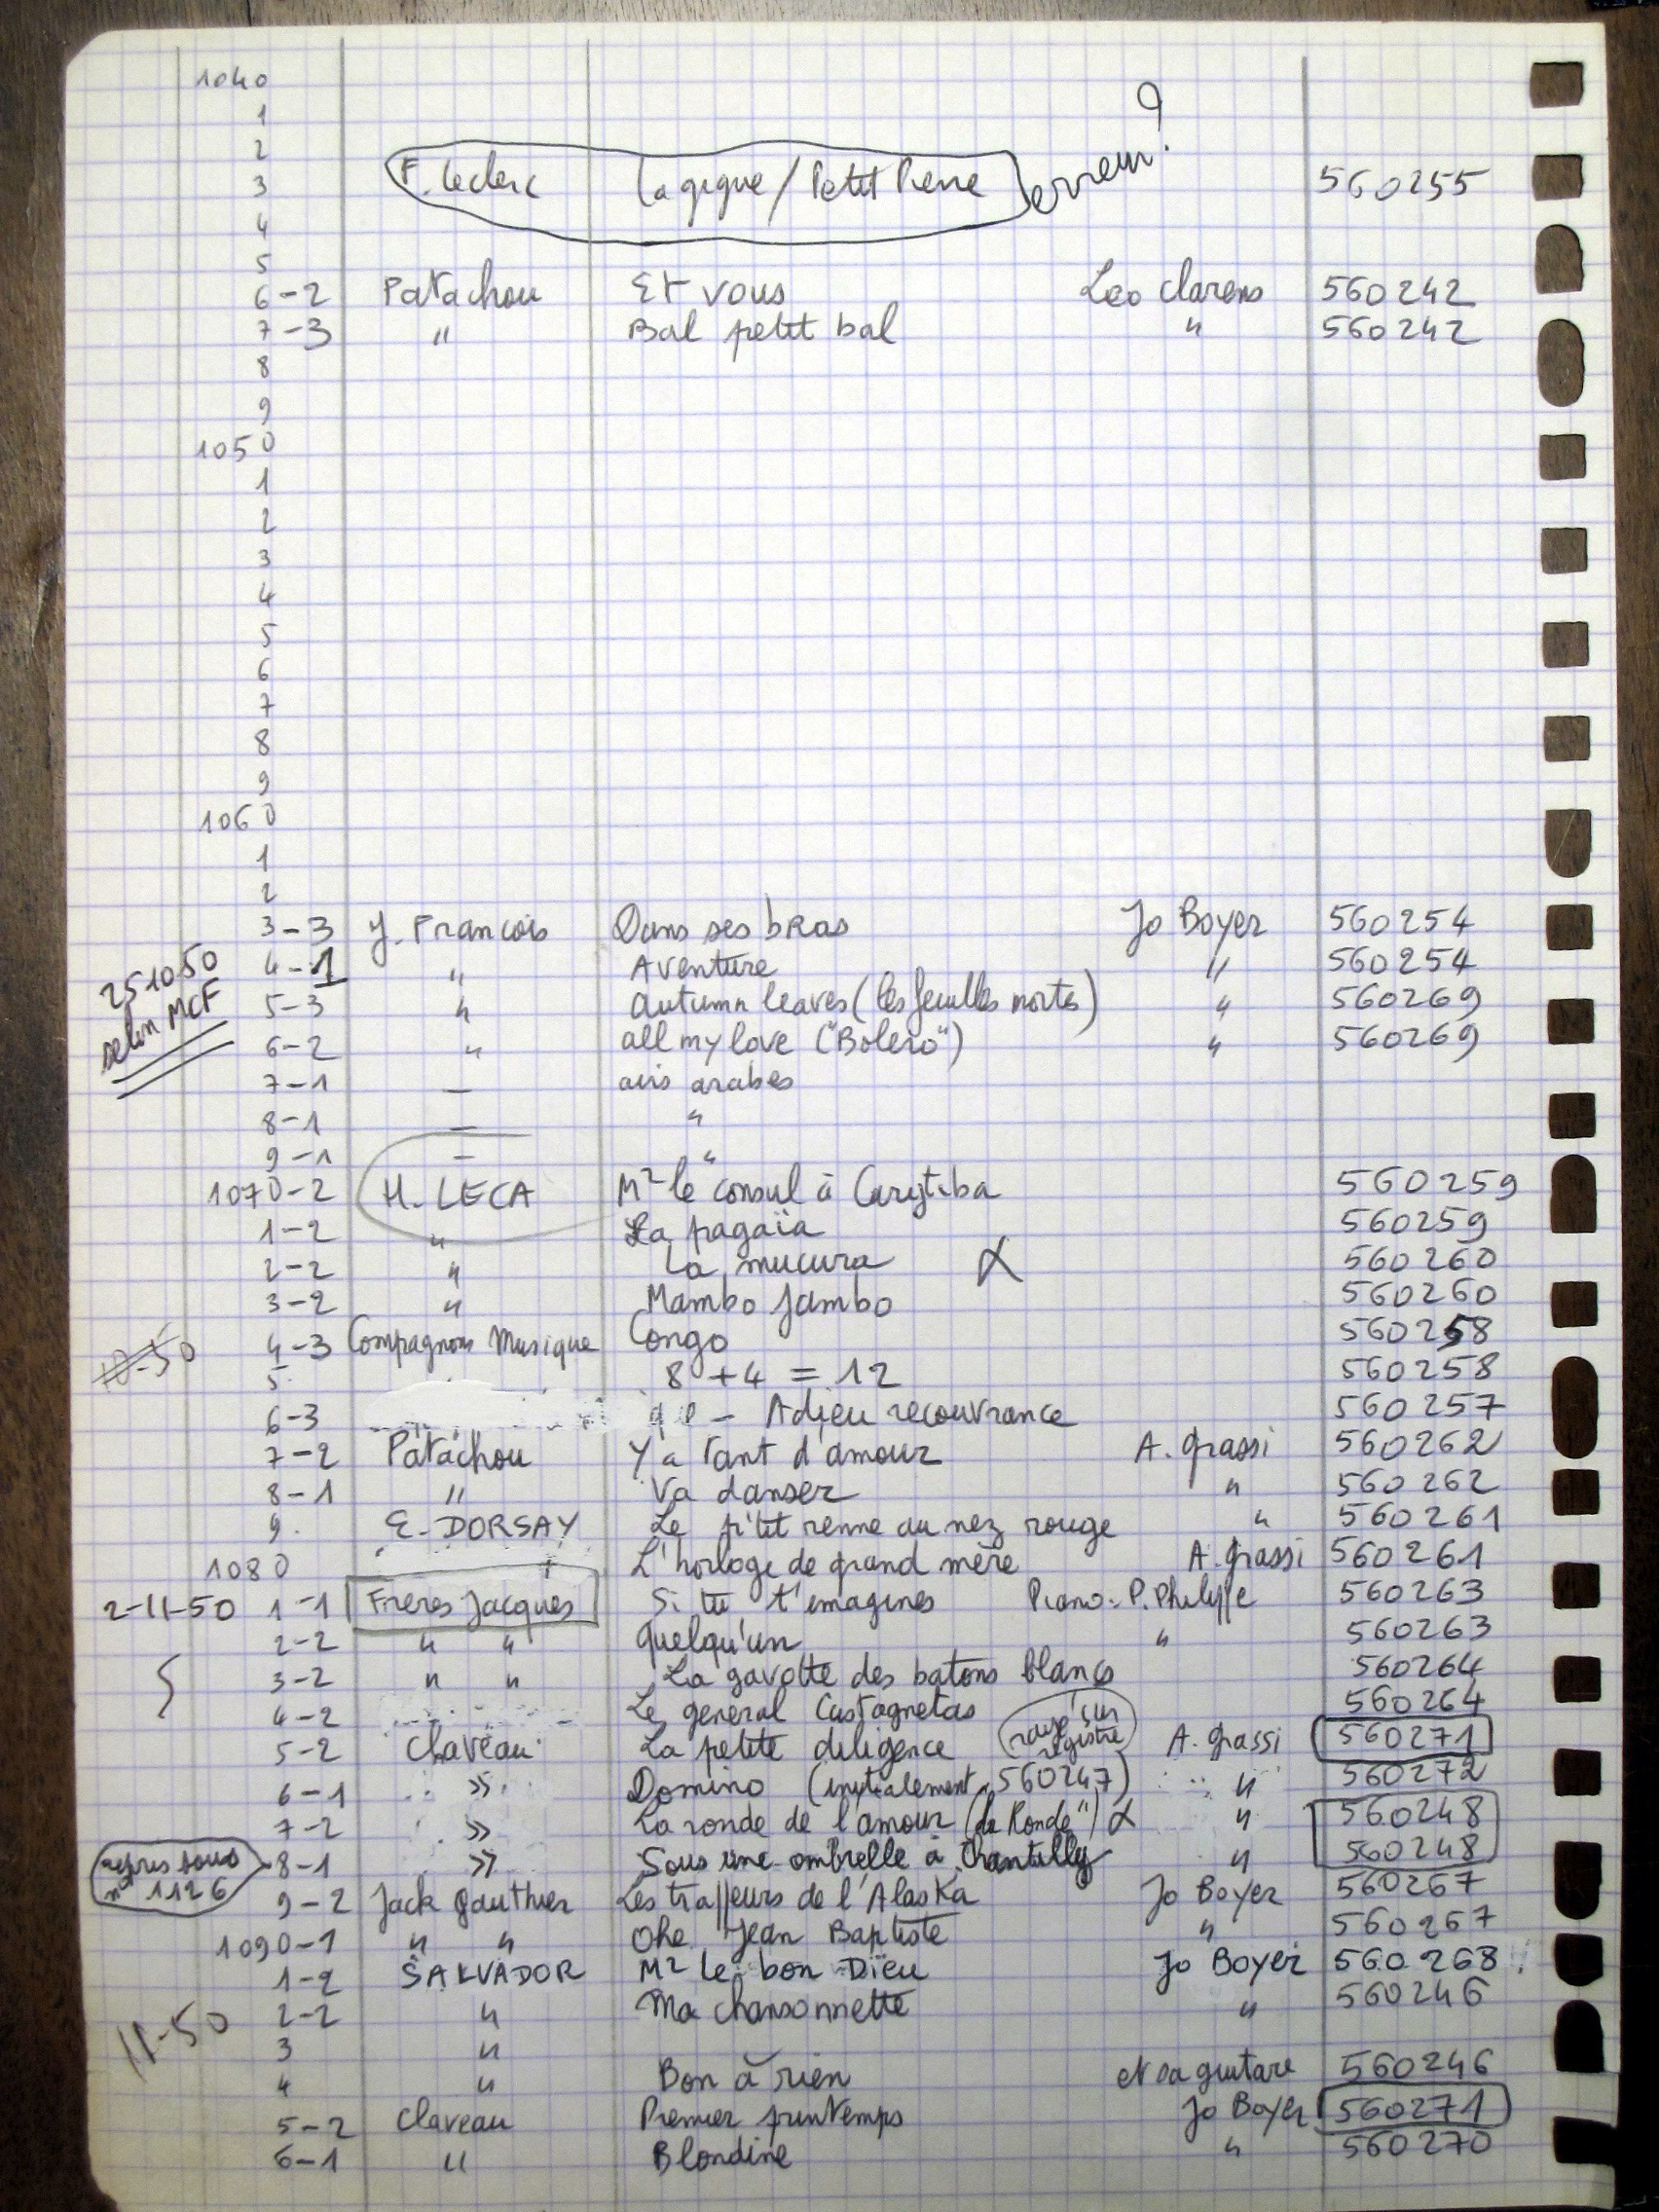 1040
1
2
3 F. Leclerc La gigue / Petit Pierre erreur? 560255
4
5
6-2 Patachou Et vous Leo Clarens 560242
7-3 " Bal petit bal " 560242
8
9
1050
1
2
3
4
5
6
7
8
9
1060
1
2
3-3 J. Francois Dans ses bras Jo Boyer 560254
4-1 " Aventure " 560254
251050 selon MCF
5-3 " Autumn leaves (les feuilles mortes) " 560269
6-2 " all my love ("Bolero") " 560269
7-1 — airs arabes
8-1 — "
9-1 — "
1070-2 H. LECA Mr le consul à Curytiba 560259
1-2 " La pagaïa 560259
2-2 " La mucura X 560260
3-2 " Mambo Jambo 560260
10-50 4-3 Compagnons Musique Congo 560258
5 8 + 4 = 12 560258
6-3 - Adieu recouvrance 560257
7-2 Patachou Y a tant d'amour A. Grassi 560262
8-1 " Va danser " 560262
9. E. DORSAY Le p'tit renne au nez rouge " 560261
1080 L'horloge de grand mère A. Grassi 560261
2-11-50 1-1 Frères Jacques Si tu t'imagines Piano: P. Philippe 560263
2-2 " " Quelqu'un " 560263
3-2 " " La gavotte des batons blancs 560264
4-2 Le general Castagnetas 560264
5-2 Claveau La petite diligence (rayé sur registre) A. Grassi 560271
6-1 » Domino (initialement 560247) " 560272
7-2 » La ronde de l'amour (la Ronde") X " 560248
repris sous n° 1126 8-1 » Sous une ombrelle à Chantilly " 560248
9-2 Jack Gauthier Les trappeurs de l'Alaska Jo Boyer 560267
1090-1 " " Ohe Jean Baptiste " 560267
1-2 SALVADOR Mr le bon Dieu Jo Boyer 560268
11-50 2-2 " Ma chansonnette " 560246
3 "
4 " Bon à rien et sa guitare 560246
5-2 Claveau Premier printemps Jo Boyer 560271
6-1 " Blondine " 560270